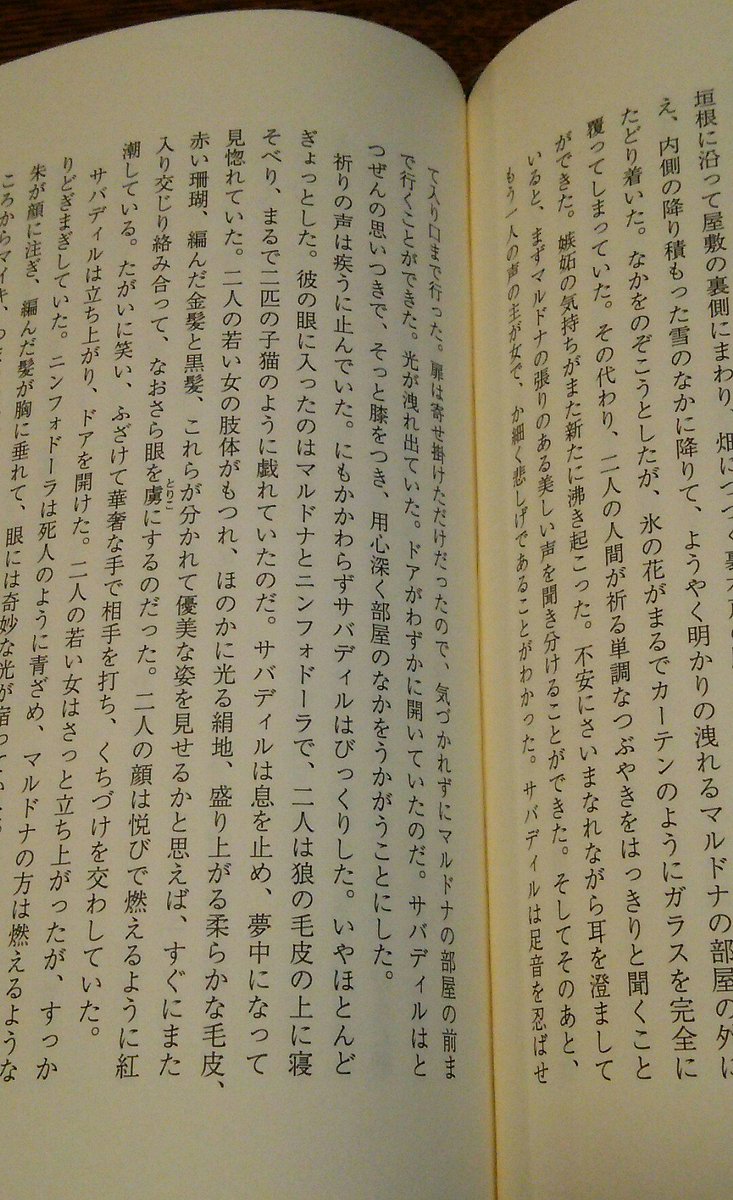 垣根に沿って屋敷の裏側にまわり、畑につづく裏
え、内側の降り積もった雪のなかに降りて、ようやく明かりの洩れるマルドナの部屋の外に
たどり着いた。なかをのぞこうとしたが、氷の花がまるでカーテンのようにガラスを完全に
覆ってしまっていた。その代わり、二人の人間が祈る単調なつぶやきをはっきりと聞くこと
ができた。嫉妬の気持ちがまた新たに沸き起こった。不安にさいまなれながら耳を澄まして
いると、まずマルドナの張りのある美しい声を聞き分けることができた。そしてそのあと、
もう一人の声の主が女で、か細く悲しげであることがわかった。サバディルは足音を忍ばせ
て入り口まで行った。扉は寄せ掛けただけだったので、気づかれずにマルドナの部屋の前ま
で行くことができた。光が洩れ出ていた。ドアがわずかに開いていたのだ。サバディルはと
つぜんの思いつきで、そっと膝をつき、用心深く部屋のなかをうかがうことにした。
祈りの声は疾うに止んでいた。にもかかわらずサバディルはびっくりした。いやほとんど
ぎょっとした。彼の眼に入ったのはマルドナとニンフォドーラで、二人は狼の毛皮の上に寝
そべり、まるで二匹の子猫のように戯れていたのだ。サバディルは息を止め、夢中になって
見惚れていた。二人の若い女の肢体がもつれ、ほのかに光る絹地、盛り上がる柔らかな毛皮、
赤い珊瑚、編んだ金髪と黒髪、これらが分かれて優美な姿を見せるかと思えば、すぐにまた
入り交じり絡み合って、なおさら眼を虜にするのだった。二人の顔は悦びで燃えるように紅
とりこ
潮している。たがいに笑い、ふざけて華奢な手で相手を打ち、くちづけを交わしていた。
サバディルは立ち上がり、ドアを開けた。二人の若い女はさっと立ち上がったが、すっか
りどぎまぎしていた。ニンフォドーラは死人のように青ざめ、マルドナの方は燃えるような
朱が顔に注ぎ、編んだ髪が胸に垂れて、眼には奇妙な光が宿って
ころからマイキ